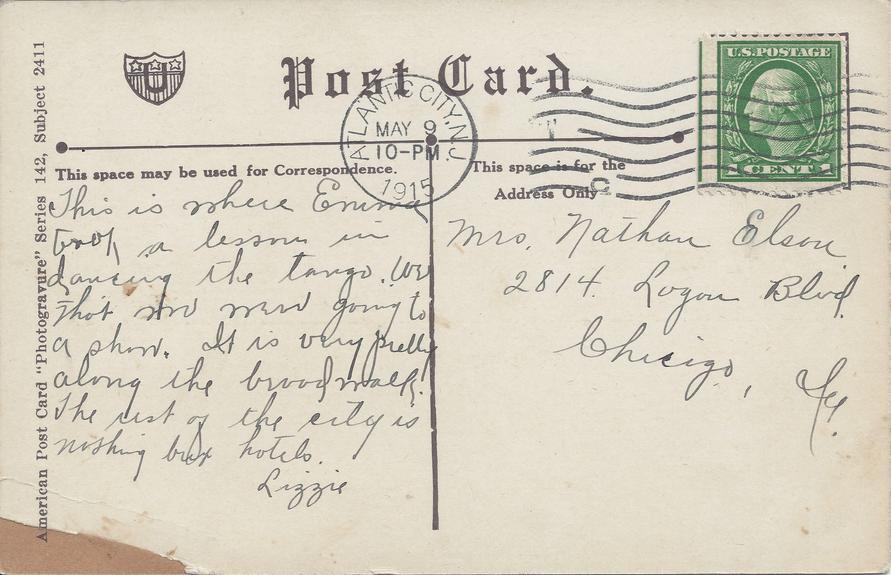 American Post Card "Photogravure" Series 142, Subject 2411
U
Post Card.
ATLANTIC CITY, N.J.
MAY 9
10-PM
1915
U.S. POSTAGE
1 CENT 1
This space may be used for Correspondence.
This space is for the
Address Only
This is where Emma
took a lesson in
dancing the tango. We
thot we were going to
a show. It is very pretty
along the broadwalk.
The rest of the city is
nothing but hotels.
Lizzie
Mrs. Nathan Elson
2814. Logan Blvd.
Chicigo,